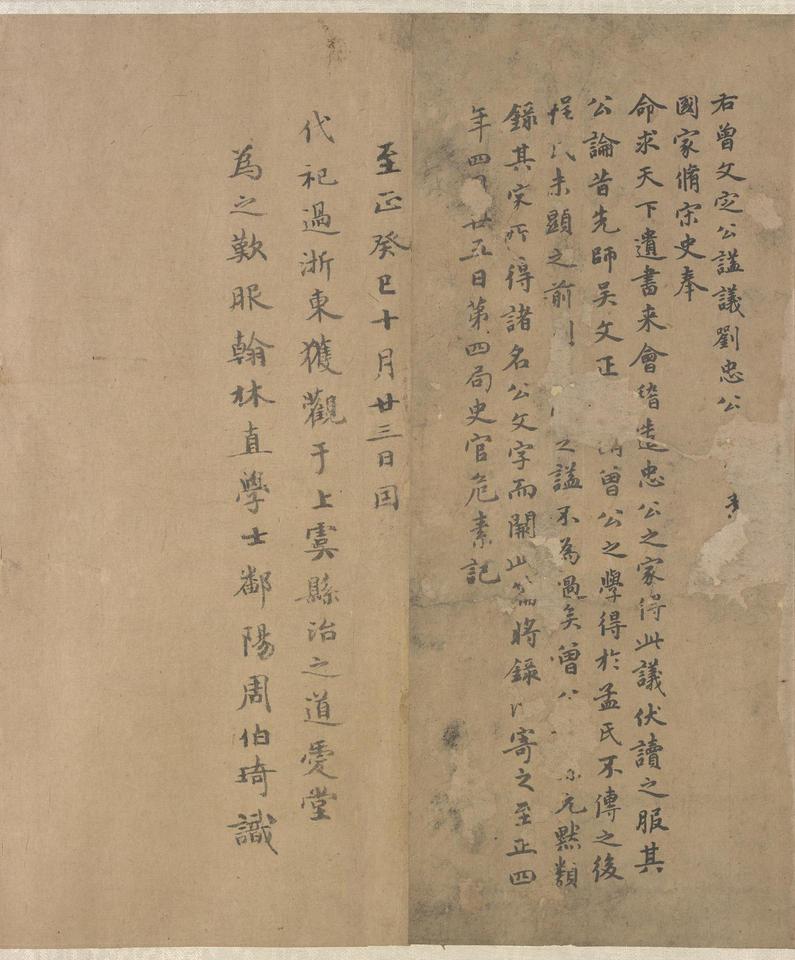 右曾文定公謚議劉忠公
國家脩宋史奉
命求天下遺書来會稽遠忠公之家得此議伏讀之服其
公論昔先師吳文正曾公之學得於孟氏不傳之後
程氏未顯之前之謚不為過矣曾元黙類
錄其宋所得諸名公文字而闕此篇將錄寄之至正四
年四廿五日第四局史官危素記
至正癸巳十月廿三日因
代祀過浙東獲觀于上虞縣治之道愛堂
為之歎服翰林直學士鄱陽周伯琦識